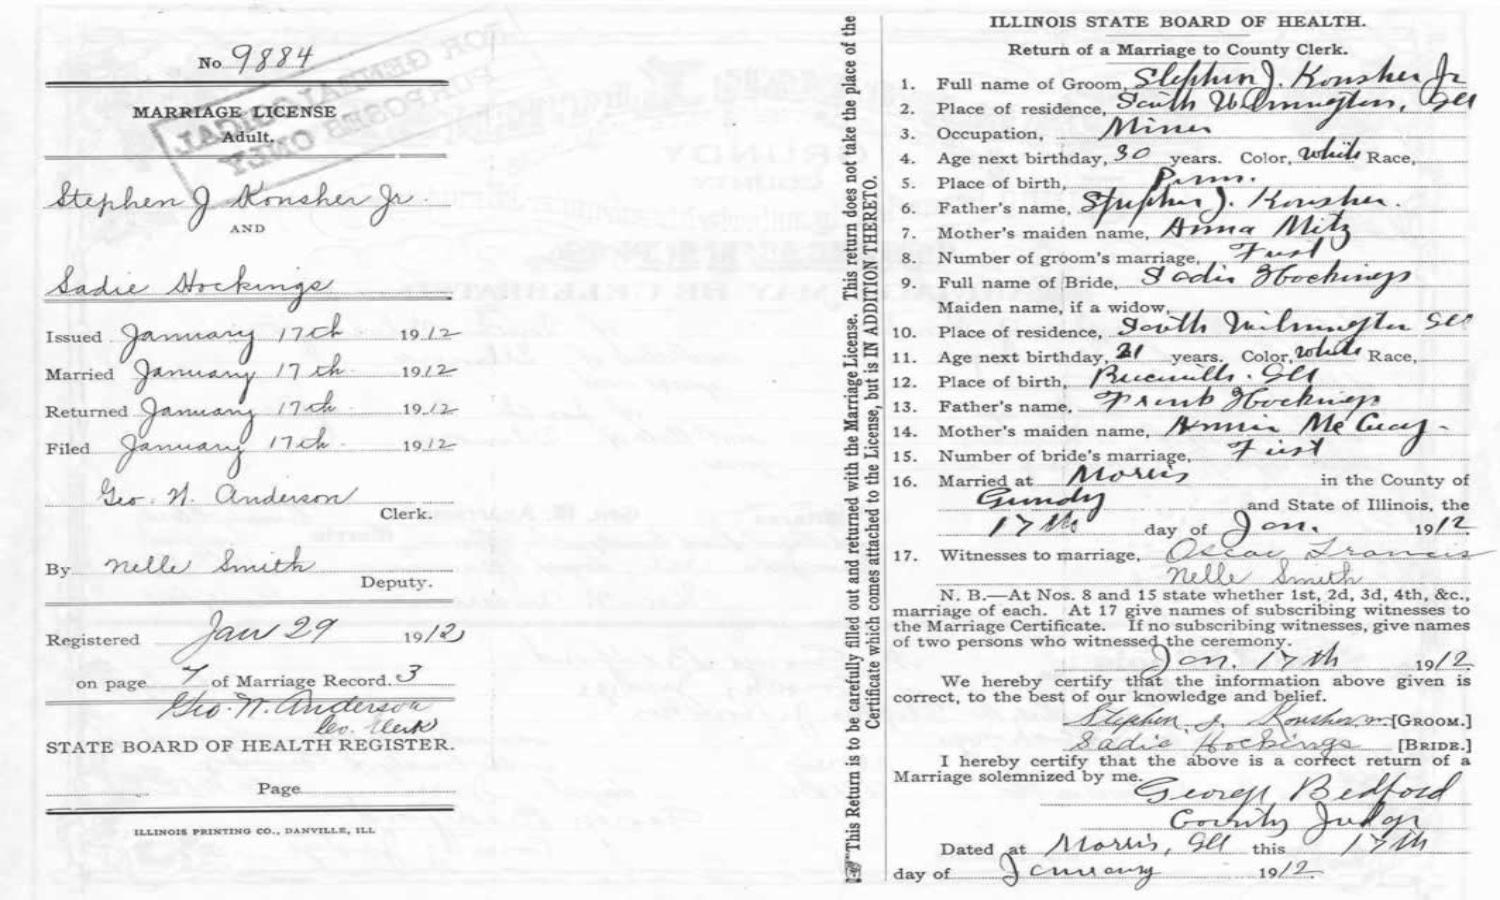 No 9884
MARRIAGE LICENSE
Adult.
Stephen J Konsher Jr.
AND
Sadie Hockings
Issued January 17th 1912
Married January 17th 1912
Returned January 17th 1912
Filed January 17th 1912
Geo. N. Anderson
Clerk.
By Nelle Smith
Deputy.
Registered Jan 29 1912
on page 7 of Marriage Record. 3
Geo. N. Anderson
Co. Clerk
STATE BOARD OF HEALTH REGISTER.
Page
ILLINOIS PRINTING CO., DANVILLE, ILL
FOR GENEALOGICAL
PURPOSES ONLY
This Return is to be carefully filled out and returned with the Marriage License. This return does not take the place of the
Certificate which comes attached to the License, but is IN ADDITION THERETO.
ILLINOIS STATE BOARD OF HEALTH.
Return of a Marriage to County Clerk.
1. Full name of Groom, Stephen J. Konsher Jr
2. Place of residence, South Wilmington, Ill
3. Occupation, Miner
4. Age next birthday, 30 years. Color, white Race,
5. Place of birth, Penn.
6. Father's name, Stephen J. Konsher.
7. Mother's maiden name, Anna Metz
8. Number of groom's marriage, First
9. Full name of Bride, Sadie Hockings
Maiden name, if a widow,
10. Place of residence, South Wilmington Ill
11. Age next birthday, 21 years. Color, white Race,
12. Place of birth, Ill
13. Father's name, Frank Hockings
14. Mother's maiden name, Annie
15. Number of bride's marriage, First
16. Married at Morris in the County of
Grundy and State of Illinois, the
17th day of Jan. 1912
17. Witnesses to marriage, Oscar Francis
Nelle Smith
N. B.—At Nos. 8 and 15 state whether 1st, 2d, 3d, 4th, &c.,
marriage of each. At 17 give names of subscribing witnesses to
the Marriage Certificate. If no subscribing witnesses, give names
of two persons who witnessed the ceremony.
Jan. 17th 1912
We hereby certify that the information above given is
correct, to the best of our knowledge and belief.
Stephen J. Konsher [GROOM.]
Sadie Hockings [BRIDE.]
I hereby certify that the above is a correct return of a
Marriage solemnized by me.
George Bedford
County Judge
Dated at Morris, Ill this 17th
day of January 1912